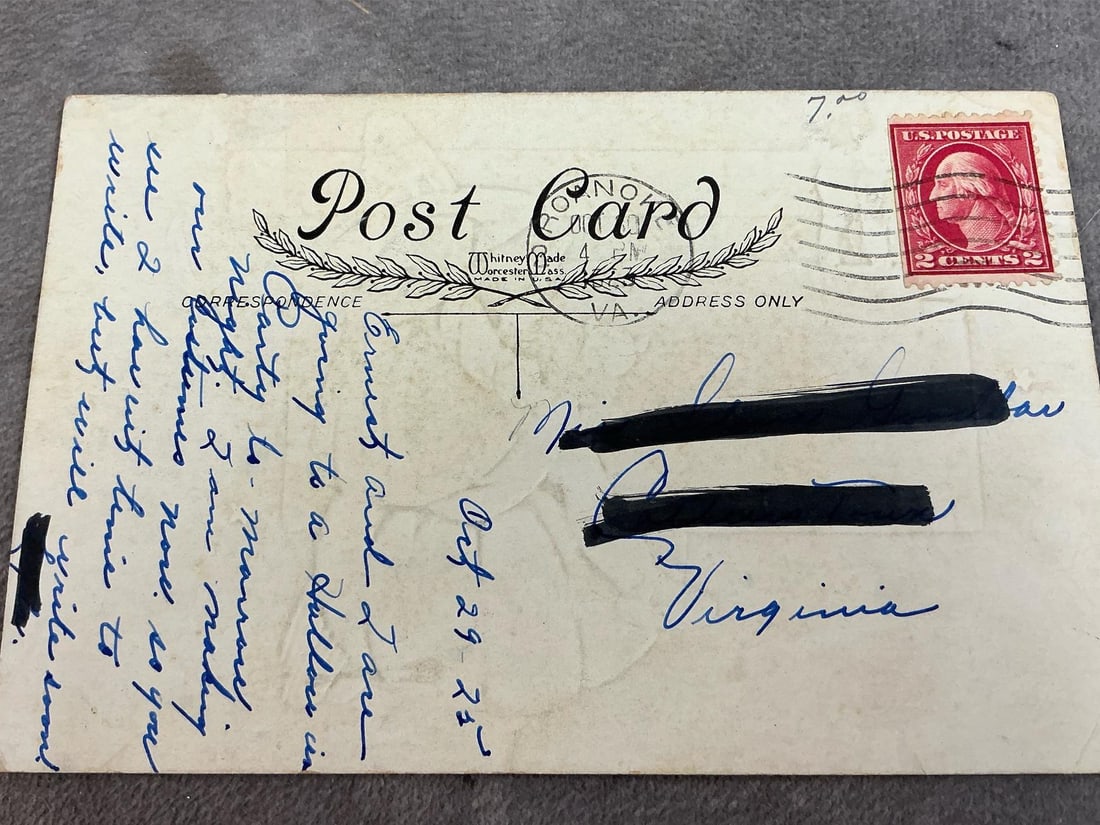 7.00
U.S. POSTAGE
2 CENTS 2
Post Card
4 PM
VA.
Whitney Made
Worcester Mass.
MADE IN U.S.A.
CORRESPONDENCE
ADDRESS ONLY
Oct 29-25
Ernest and I are
going to a Hallow in
Party to-morrow
Night I am making
our costumes now. so you
see I havint time to
write, but will write soon
Virginia